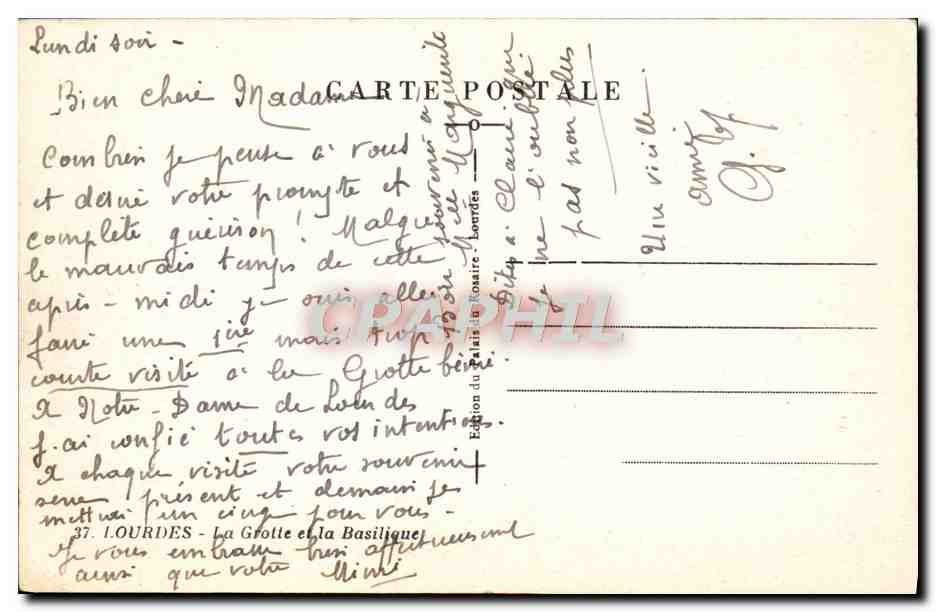 Lundi soir -
CARTE POSTALE
Bien chère Madame
Combien je pense à vous
et désire votre prompte et
complète guérison ! Malgré
le mauvais temps de cette
après-midi j'y suis allée
faire une 1ère mais trop
courte visite à la Grotte bénie.
A Notre-Dame de Lourdes
j'ai confié toutes vos intentions.
A chaque visite votre souvenir
sera présent et demain je
mettrai un cierge pour vous -
37. LOURDES - La Grotte et la Basilique
Je vous embrasse bien affectueusement
ainsi que votre Mimi
Bon souvenir à
Melle Marguerite
Dites à Claire que
je ne l'oublie
pas non plus
Une vieille
amie
G.
Edition du Palais du Rosaire - Lourdes
CPAPHIL